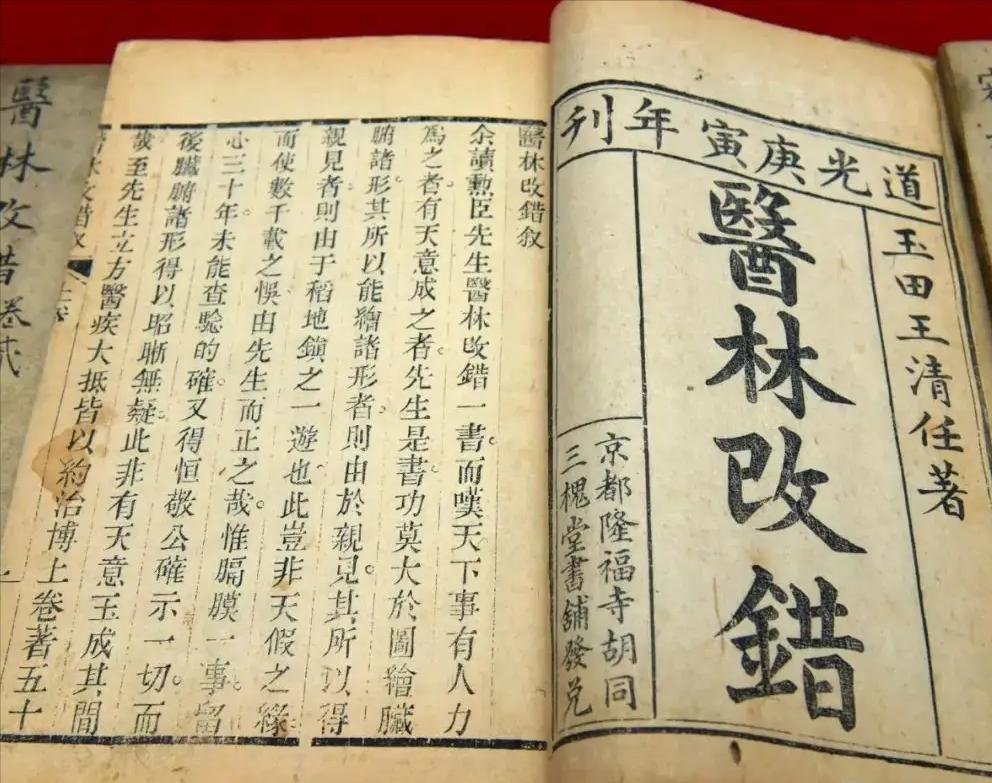 道光庚寅年刊
玉田王清任著
醫林改錯
京都隆福寺胡同
三槐堂書鋪發兌
醫林改錯敘
余讀勲臣先生醫林改錯一書。而嘆天下事有人力
爲之者。有天意成之者。先生是書功莫大於圖繪臟
腑諸形。其所以能繪諸形者。則由於親見。其所以得
親見者。則由于稻地鎮之一遊也。此豈非天假之緣
而使數千載之悞由先生而正之哉。惟膈膜一事。留
心三十年。未能查騐的確。又得恒敬公確示一切。而
後臟腑諸形得以昭晰無疑。此非有天意玉成其間
哉。至先生立方醫疾大抵皆以約治博上卷著五十
醫林改錯敘
一
醫林改錯卷貳